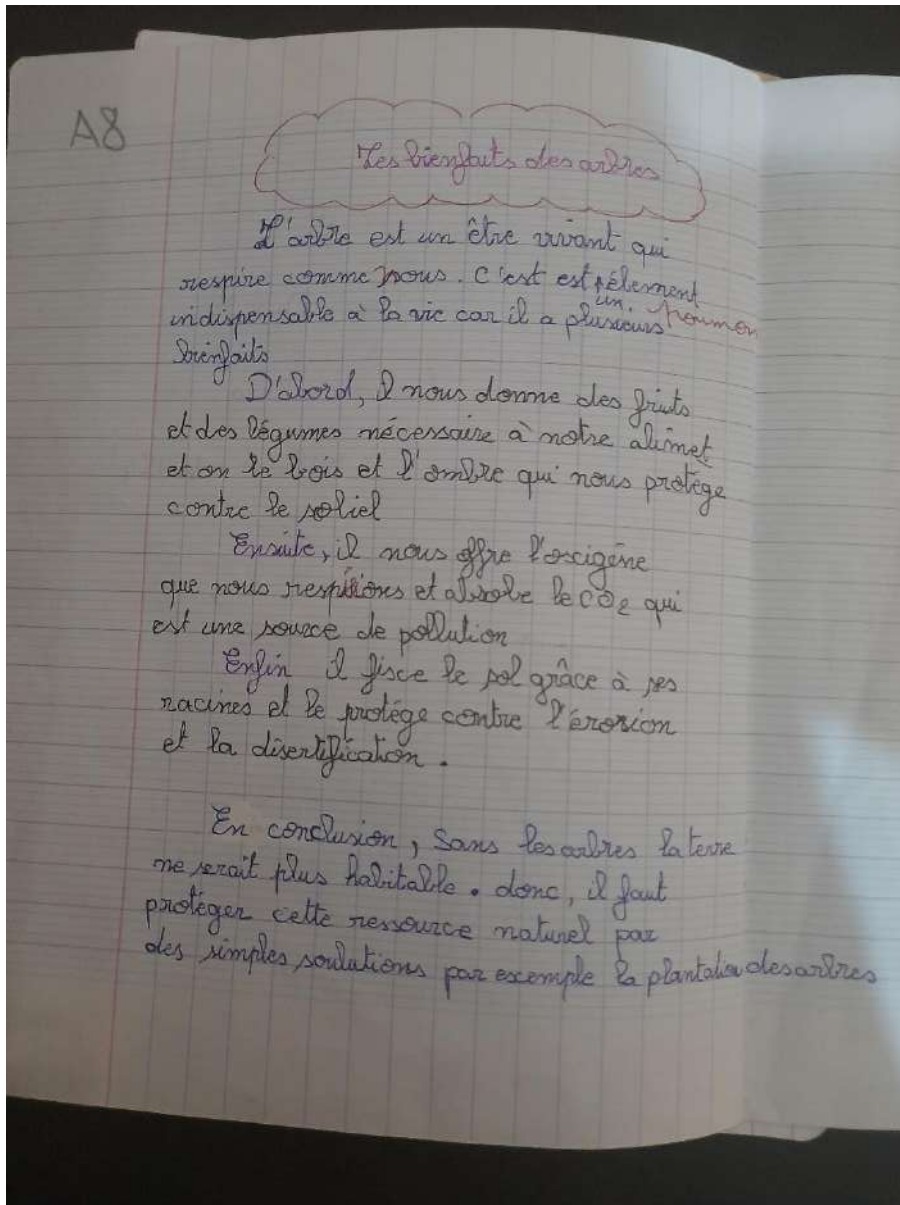 A8
Les bienfaits des arbres
L'arbre est un être vivant qui
respire comme nous. C'est est élement
un poumon
indispensable à la vie car il a plusieurs
bienfaits
D'abord, il nous donne des fruits
et des légumes nécessaire à notre alimet
et on le bois et l'ombre qui nous protège
contre le soliel
Ensuite, il nous offre l'oxigène
que nous respirions et absobe le CO2 qui
est une source de pollution
Enfin il fixe le sol grâce à ses
racines et le protége contre l'érosion
et la disertification.
En conclusion, Sans les arbres la terre
ne serait plus habitable. donc, il faut
protéger cette ressource naturel par
des simples soulutions par exemple la plantation des arbres